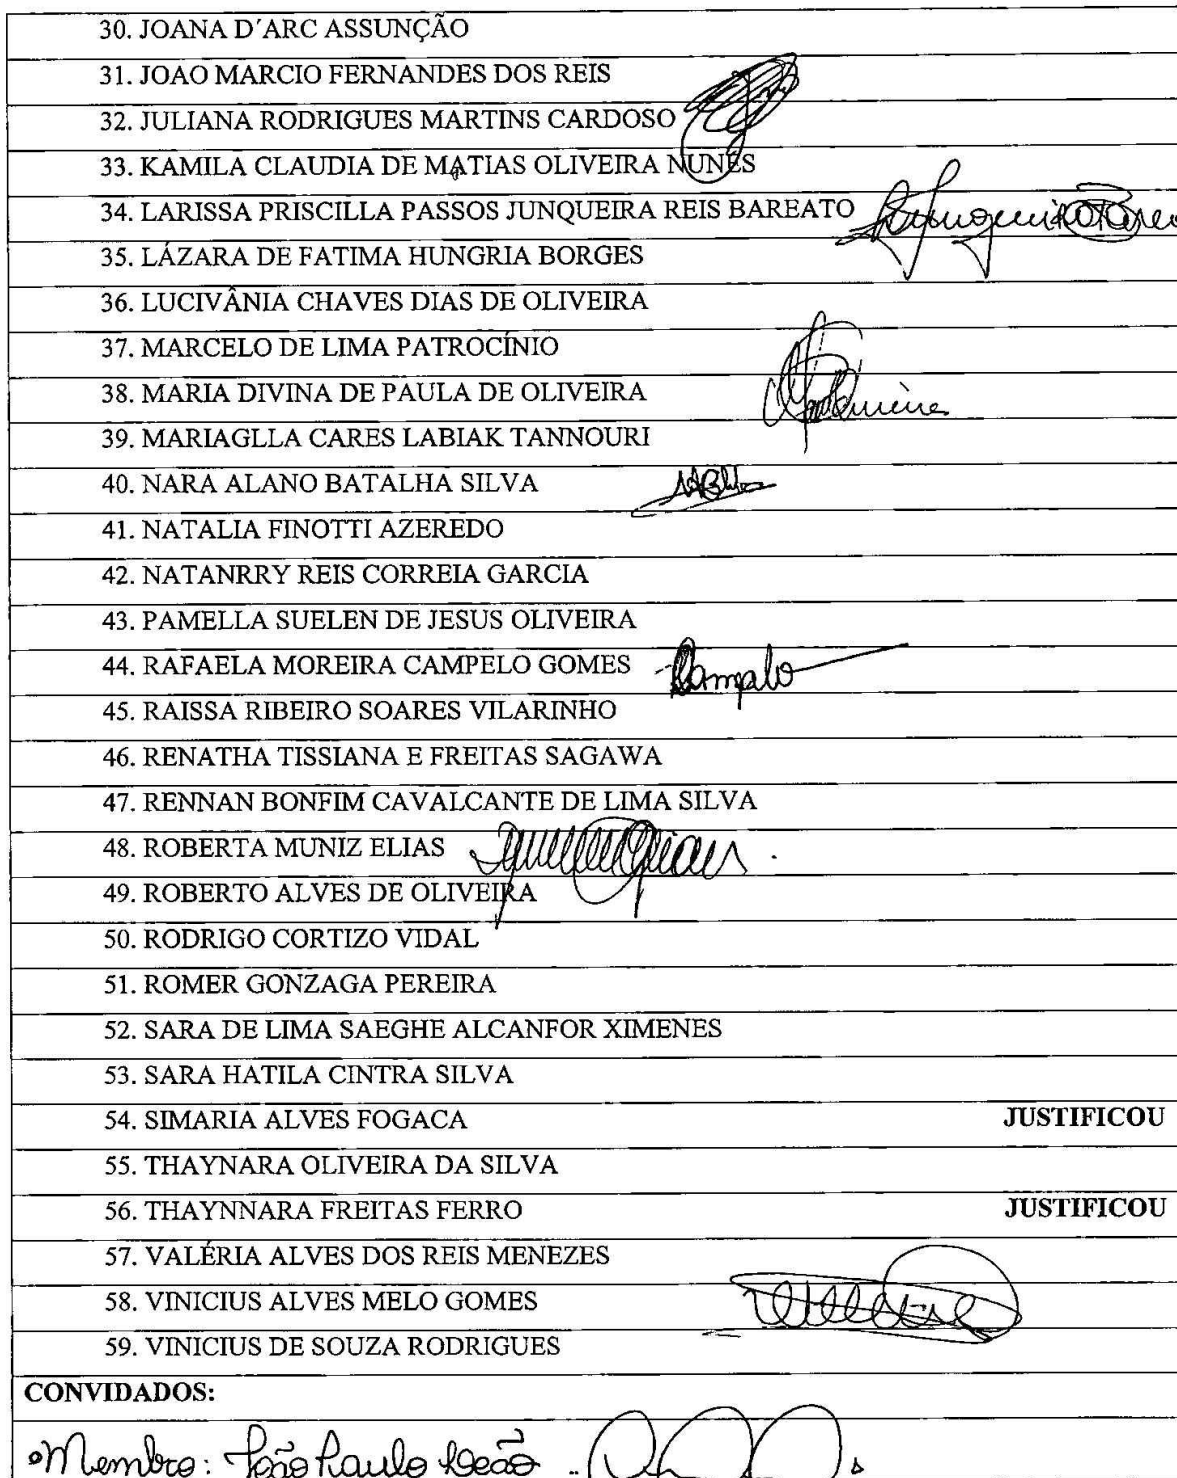 30. JOANA D´ARC ASSUNÇÃO
31. JOAO MARCIO FERNANDES DOS REIS
32. JULIANA RODRIGUES MARTINS CARDOSO
33. KAMILA CLAUDIA DE MATIAS OLIVEIRA NUNES
34. LARISSA PRISCILLA PASSOS JUNQUEIRA REIS BAREATO
35. LÁZARA DE FATIMA HUNGRIA BORGES
36. LUCIVÂNIA CHAVES DIAS DE OLIVEIRA
37. MARCELO DE LIMA PATROCÍNIO
38. MARIA DIVINA DE PAULA DE OLIVEIRA
39. MARIAGLLA CARES LABIAK TANNOURI
40. NARA ALANO BATALHA SILVA
41. NATALIA FINOTTI AZEREDO
42. NATANRRY REIS CORREIA GARCIA
43. PAMELLA SUELEN DE JESUS OLIVEIRA
44. RAFAELA MOREIRA CAMPELO GOMES
45. RAISSA RIBEIRO SOARES VILARINHO
46. RENATHA TISSIANA E FREITAS SAGAWA
47. RENNAN BONFIM CAVALCANTE DE LIMA SILVA
48. ROBERTA MUNIZ ELIAS
49. ROBERTO ALVES DE OLIVEIRA
50. RODRIGO CORTIZO VIDAL
51. ROMER GONZAGA PEREIRA
52. SARA DE LIMA SAEGHE ALCANFOR XIMENES
53. SARA HATILA CINTRA SILVA
54. SIMARIA ALVES FOGACA JUSTIFICOU
55. THAYNARA OLIVEIRA DA SILVA
56. THAYNNARA FREITAS FERRO JUSTIFICOU
57. VALÉRIA ALVES DOS REIS MENEZES
58. VINICIUS ALVES MELO GOMES
59. VINICIUS DE SOUZA RODRIGUES
CONVIDADOS:
Membro: João Paulo Leão